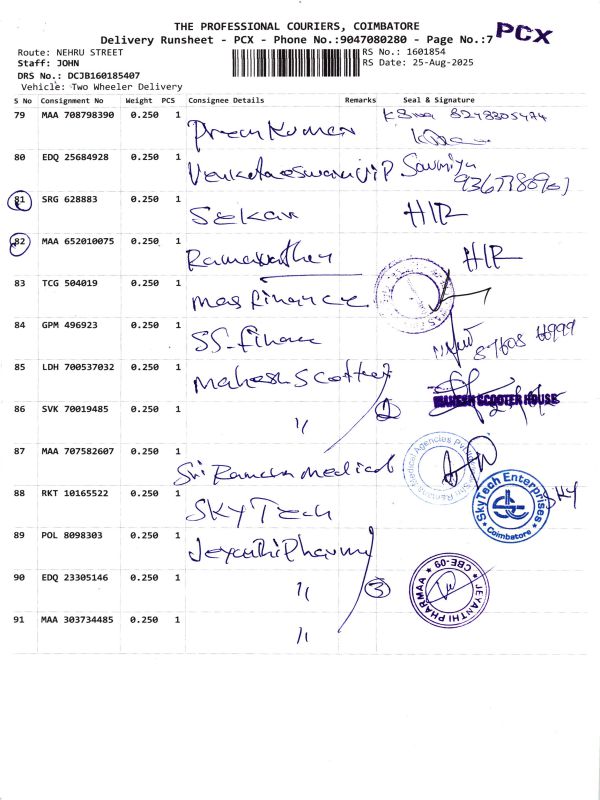 THE PROFESSIONAL COURIERS, COIMBATORE
Delivery Runsheet - PCX - Phone No.:9047080280 - Page No.:7 PCX
Route: NEHRU STREET RS No.: 1601854
Staff: JOHN RS Date: 25-Aug-2025
DRS No.: DCJB160185407
Vehicle: Two Wheeler Delivery
S No Consignment No Weight PCS Consignee Details Remarks Seal & Signature
79 MAA 708798390 0.250 1 Prem Kumar
80 EDQ 25684928 0.250 1 Venkateaswarul VIP Sowmiya
81 SRG 628883 0.250 1 Sekar H/R
82 MAA 652010075 0.250 1 H/R
83 TCG 504019 0.250 1 mas finance
84 GPM 496923 0.250 1 SS-finance
85 LDH 700537032 0.250 1 Mahesh Scotter MAHESH SCOOTER HOUSE
86 SVK 70019485 0.250 1 " 2
87 MAA 707582607 0.250 1 Sri Ramesa medical Medical Agencies
88 RKT 10165522 0.250 1 SKY Tech SkyTech Enterprises Coimbatore SKY
89 POL 8098303 0.250 1 Jeyanthi Pharma
90 EDQ 23305146 0.250 1 " 3 JEYANTHI PHARMAA CBE-09
91 MAA 303734485 0.250 1 "